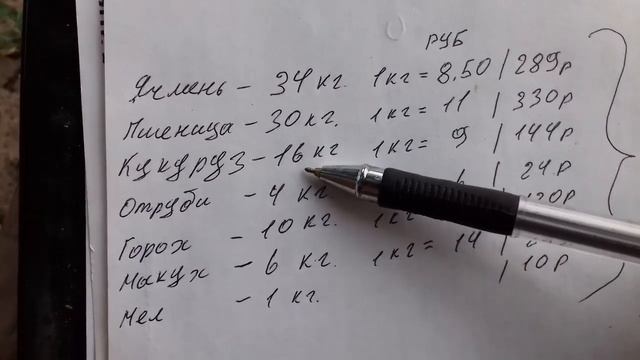 РУБ
Ячмень - 34 кг. 1кг = 8.50 | 289р
Пшеница - 30 кг. 1кг = 11 | 330р
Кукуруз - 16 кг 1кг = 9 | 144р
Отруби - 4 кг | 24р
Горох - 10 кг. 1кг
Макух - 6 кг. 1кг = 14 |
Мел - 1 кг. | 10р